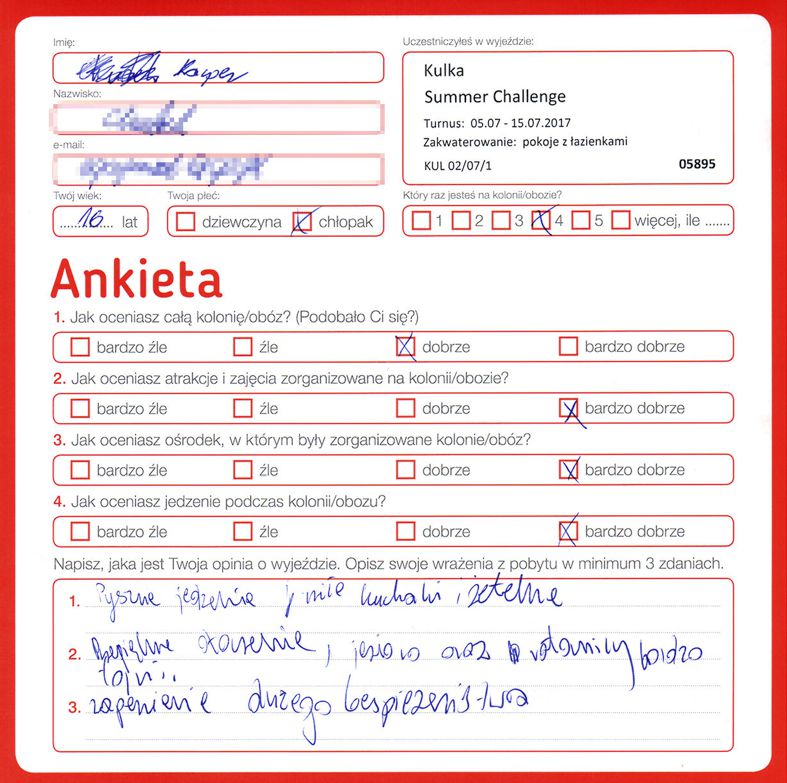 Imię:
Kacper
Nazwisko:
e-mail:
Twój wiek:
16 lat
Twoja płeć:
dziewczyna chłopak
Uczestniczyłeś w wyjeździe:
Kulka
Summer Challenge
Turnus: 05.07 - 15.07.2017
Zakwaterowanie: pokoje z łazienkami
KUL 02/07/1 05895
Który raz jesteś na kolonii/obozie?
1 2 3 4 5 więcej, ile .......
Ankieta
1. Jak oceniasz całą kolonię/obóz? (Podobało Ci się?)
bardzo źle źle dobrze bardzo dobrze
2. Jak oceniasz atrakcje i zajęcia zorganizowane na kolonii/obozie?
bardzo źle źle dobrze bardzo dobrze
3. Jak oceniasz ośrodek, w którym były zorganizowane kolonie/obóz?
bardzo źle źle dobrze bardzo dobrze
4. Jak oceniasz jedzenie podczas kolonii/obozu?
bardzo źle źle dobrze bardzo dobrze
Napisz, jaka jest Twoja opinia o wyjeździe. Opisz swoje wrażenia z pobytu w minimum 3 zdaniach.
1. Pyszne jedzenie, miłe kucharki i rzetelne
2. jezioro oraz bardzo
fajni..
3. zapenienie dużego bespieczeństwa